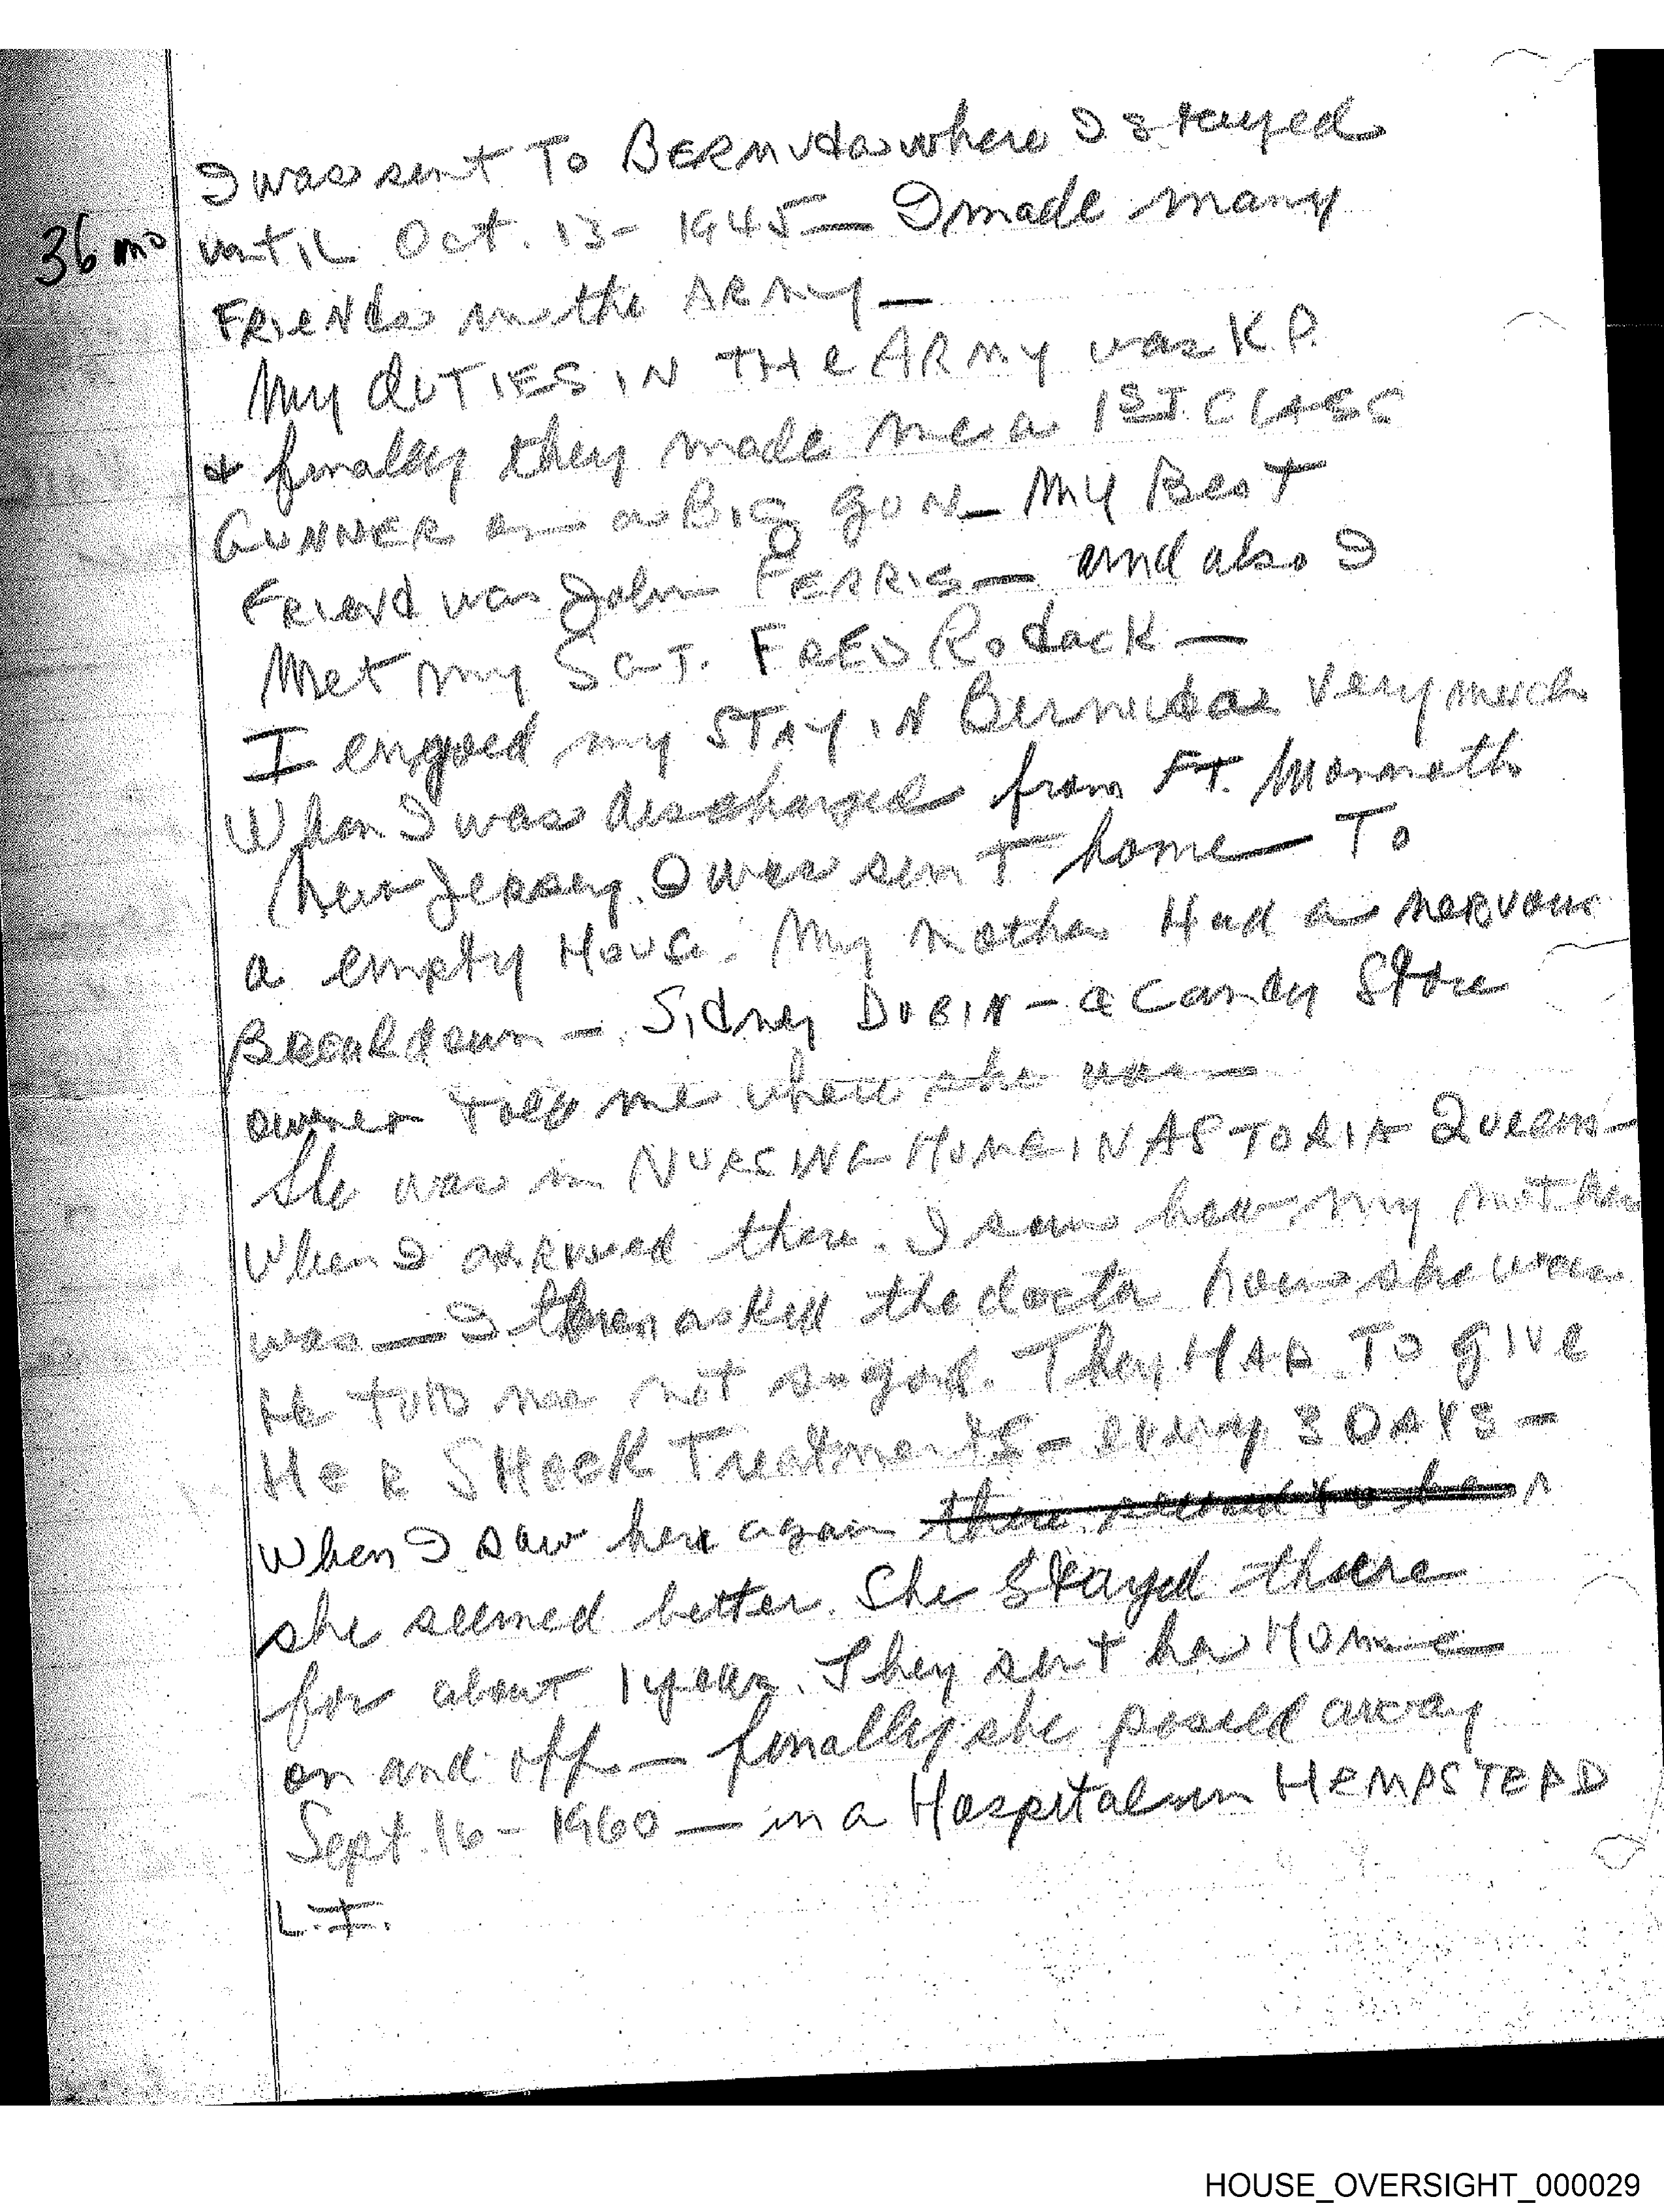 I was sent To BERMUda where I stayed
36 mo untIL Oct. 13 - 1945 — I made many
FRIENds in the ARMy —
My dUTIES IN THe ARMY was K.P.
+ finally they made me a 1ST CLASS
GUNNER on a BIG gUN — MY Best
FRIeNd was John FERRIS — and also I
Met my SGT. FRED RodacK —
I enjoyed my STAY IN Bermuda Very much
When I was discharged from FT. Monmouth
New Jersey. I was senT home — To
a empty HoUse. My mother Had a nervous
Breakdown — Sidney DUBIN - a candy Store
owner told me where she was —
She was in NURSING HOME IN ASTORIA Queens —
When I arrived there. I saw how my mother
was — I then asked the doctor how she was
He tolD me not so good. They HAD TO gIVe
HeR SHocK Treatments - every 3 DAYS —
When I saw her again
she seemed better. She Stayed there
for about 1 year. They sent her Home
on and off — finally she passed away
Sept. 16 - 1960 — in a Hospital in HEMPSTEAD
L.I.
HOUSE_OVERSIGHT_000029